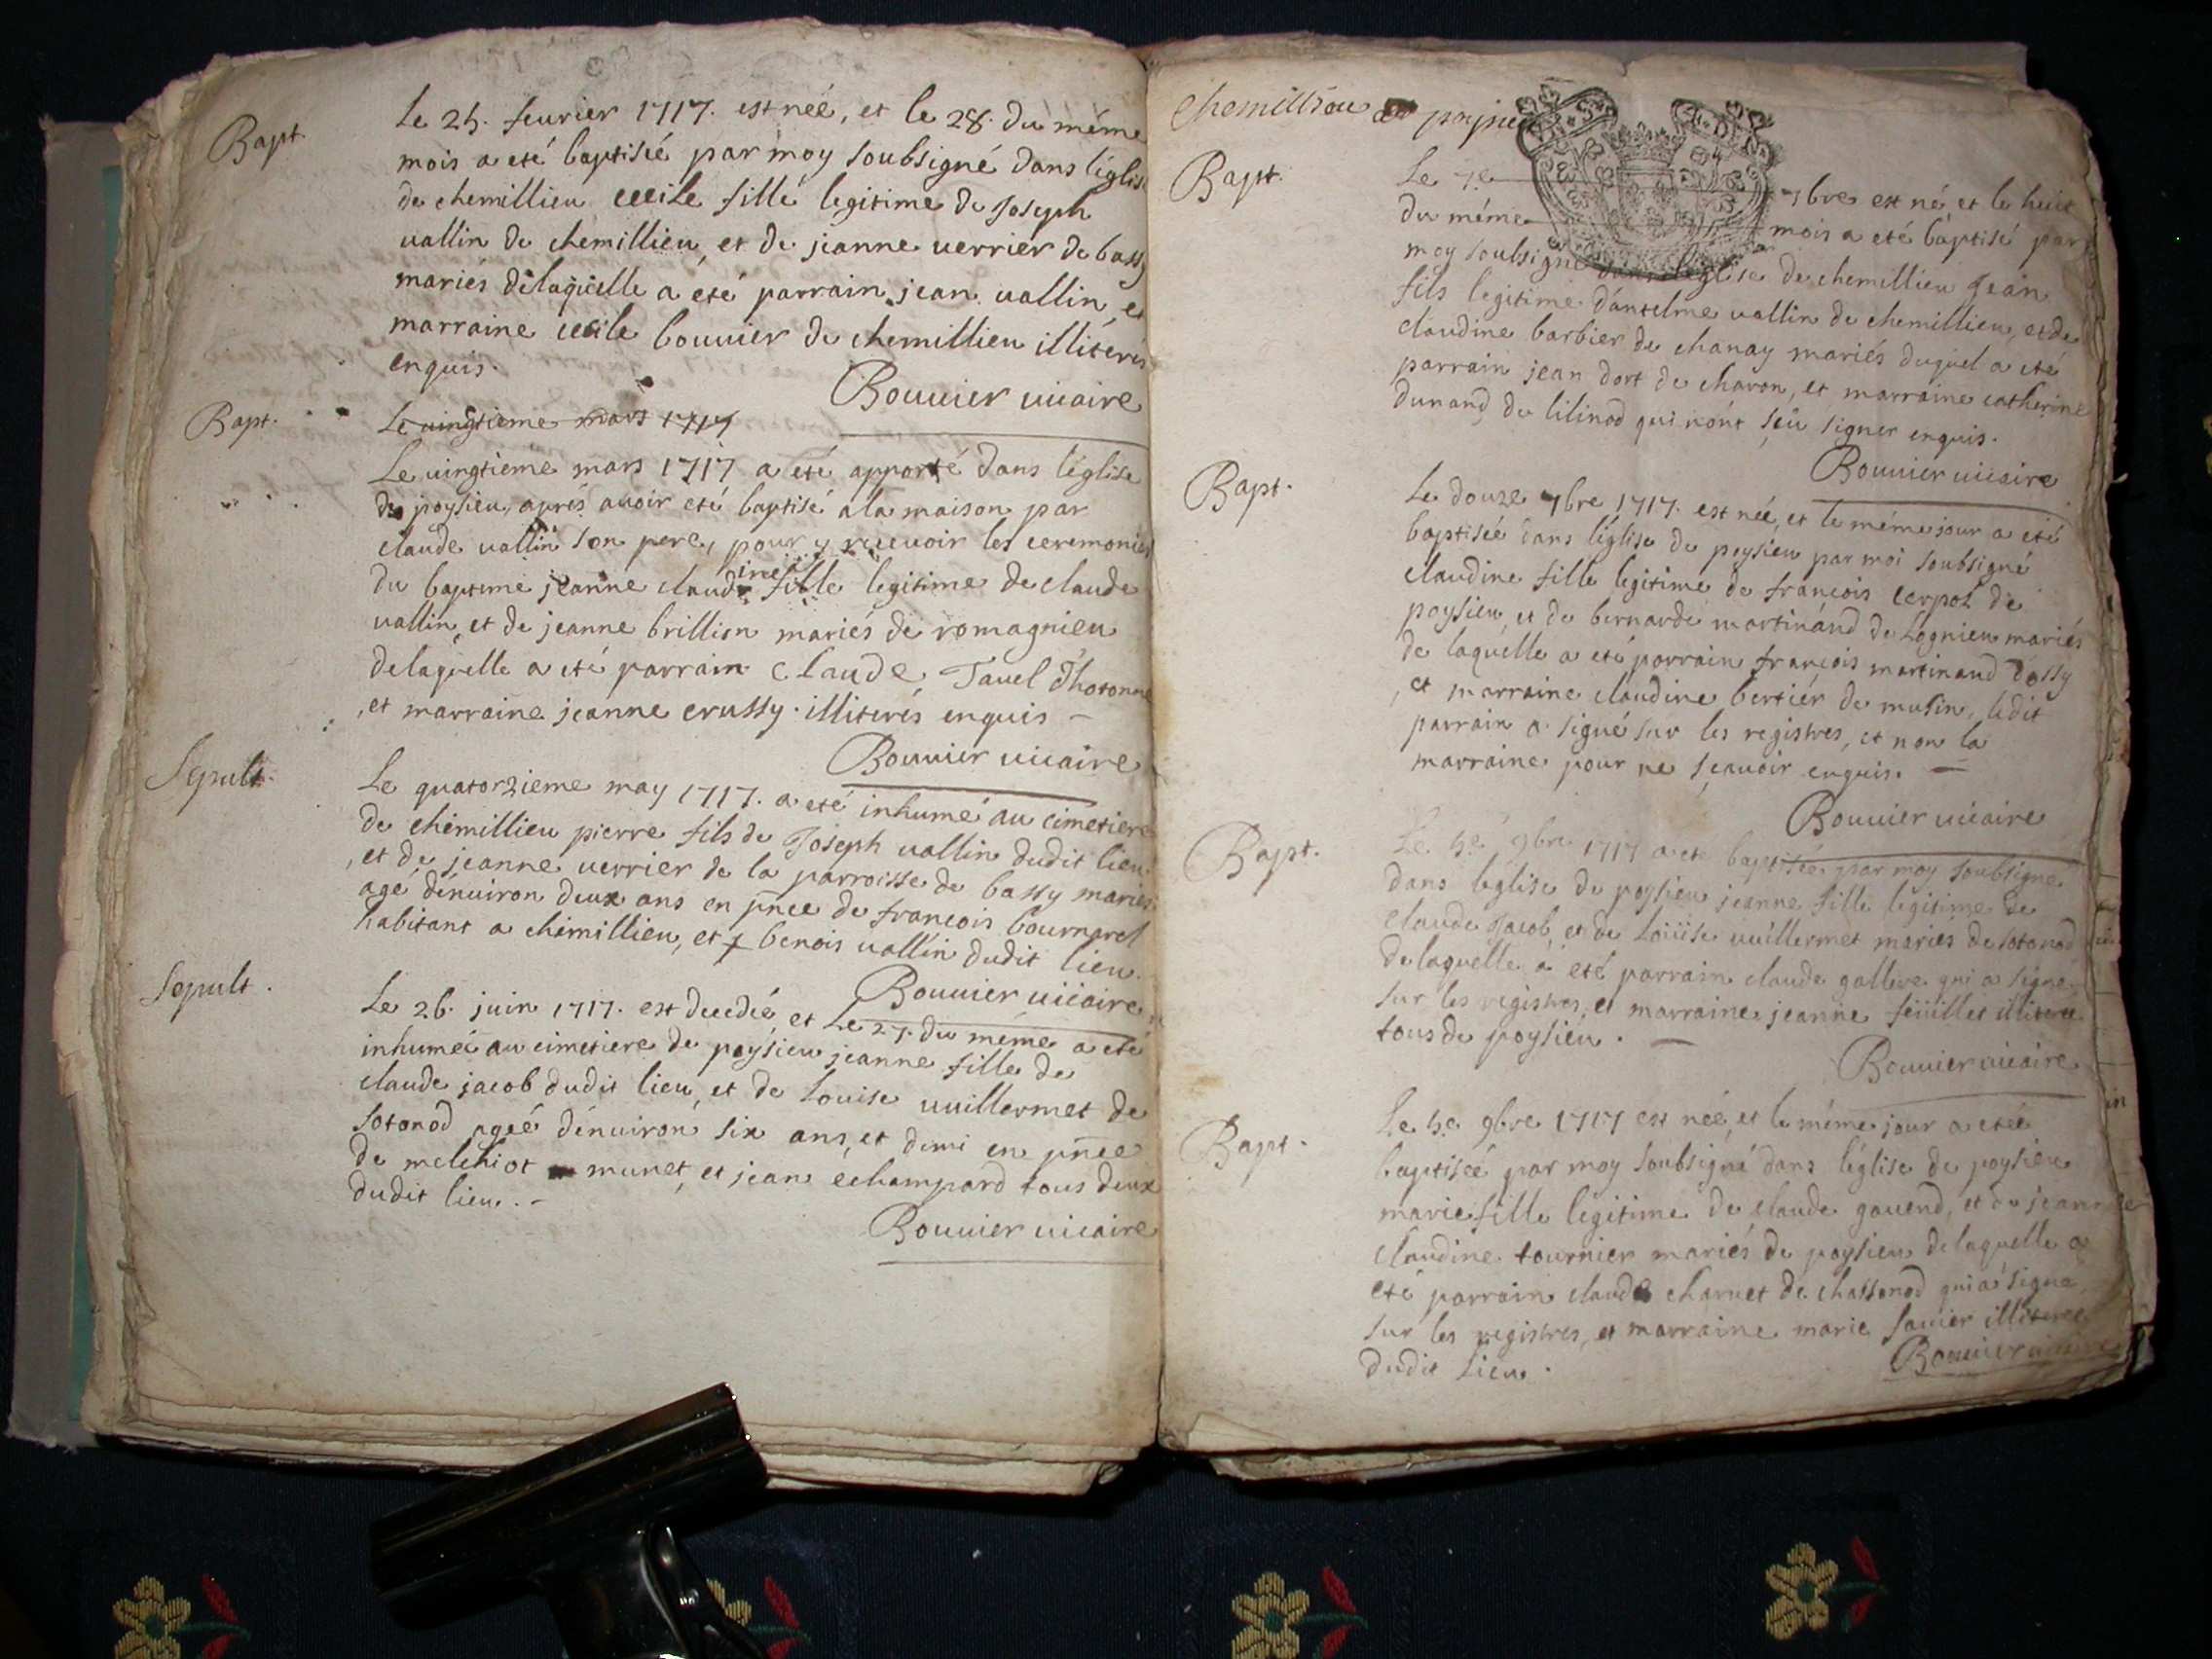 Bapt.
Le 25. feurier 1717. est neé, et le 28. du méme
mois a eté baptiseé par moy soubsigné dans léglise
de chemillieu cecile fille legitime de Joseph
uallin de chemillieu, et de jeanne uerrier de bassy
mariés delaquelle a eté parrain jean uallin, et
marraine cecile bouuier de chemillieu illiterés
enquis.
Bouuier uicaire
Bapt.
Le uingtieme mars 1717
Le uingtieme mars 1717 a eté apporté dans léglise
de poysieu, aprés auoir eté baptisé a la maison par
claude uallin son pere, pour y receuoir les ceremonies
du bapteme jeanne claudine fille legitime de claude
uallin, et de jeanne brillion mariés de romagnieu
delaquelle a eté parrain Claude Tauel d'hotonne
, et marraine jeanne crussy. illiterés enquis –
Bouuier uicaire
Sepult.
Le quatorzieme may 1717. a eté inhumé au cimetiere
de chemillieu pierre fils de Joseph uallin dudit lieu
, et de jeanne uerrier de la parroisse de bassy mariés
agé dénuiron deux ans en pñce de francois bournarel
habitant a chemillieu, et benois uallin dudit lieu.
Bouuier uicaire
Sepult.
Le 26. juin 1717. est decedeé, et Le 27. du méme a eté
inhumeé au cimetiere de poysieu jeanne fille de
claude jacob dudit lieu, et de Louise uuillermet de
sotonod ageé dénuiron six ans, et demi en pñce
de melchiot munet, et jean echampard tous deux
dudit lieu. –
Bouuier uicaire
Chemillieu et poysieu
Bapt.
Le 7e 7bre est né et le huit
du méme mois a eté baptisé par
moy soubsigné dans léglise de chemillieu Jean
fils legitime d'antelme uallin de chemillieu, et de
claudine barbier de chanay mariés duquel a eté
parrain jean dort de charon, et marraine catherine
dunand de lilinod qui n'ont sçû signer enquis.
Bouuier uicaire
Bapt.
Le douze 7bre 1717. est neé, et le méme jour a eté
baptiseé dans léglise de poysieu par moi soubsigné
claudine fille legitime de francois cerpol de
poysieu, et de bernarde martinand de Lagnieu mariés
de laquelle a eté parrain francois martinand dossy
, et marraine claudine bertier de musin, ledit
parrain a signé sur les registres, et non la
marraine pour ne sçauoir enquis. –
Bouuier uicaire
Bapt.
Le 5e 9bre 1717 a eté baptiseé par moy soubsigné
dans leglise de poysieu jeanne fille legitime de
claude Jacob, et de Loüise uuillermet mariés de sotonod
de laquelle a eté parrain claude gallice qui a signé
sur les registres, et marraine jeanne feüillet illiteree
tous de poysieu. –
Bouuier uicaire
Bapt.
Le 5e 9bre 1717 est neé, et le méme jour a eteé
baptiseé par moy soubsigné dans léglise de poysieu
marie fille legitime de claude gauend, et de jeanne
claudine tournier mariés de poysieu delaquelle a
eté parrain claude charuet de chassonod qui a signé
sur les registres, et marraine marie sauier illiteree
dudit Lieu.
Bouuier uicaire